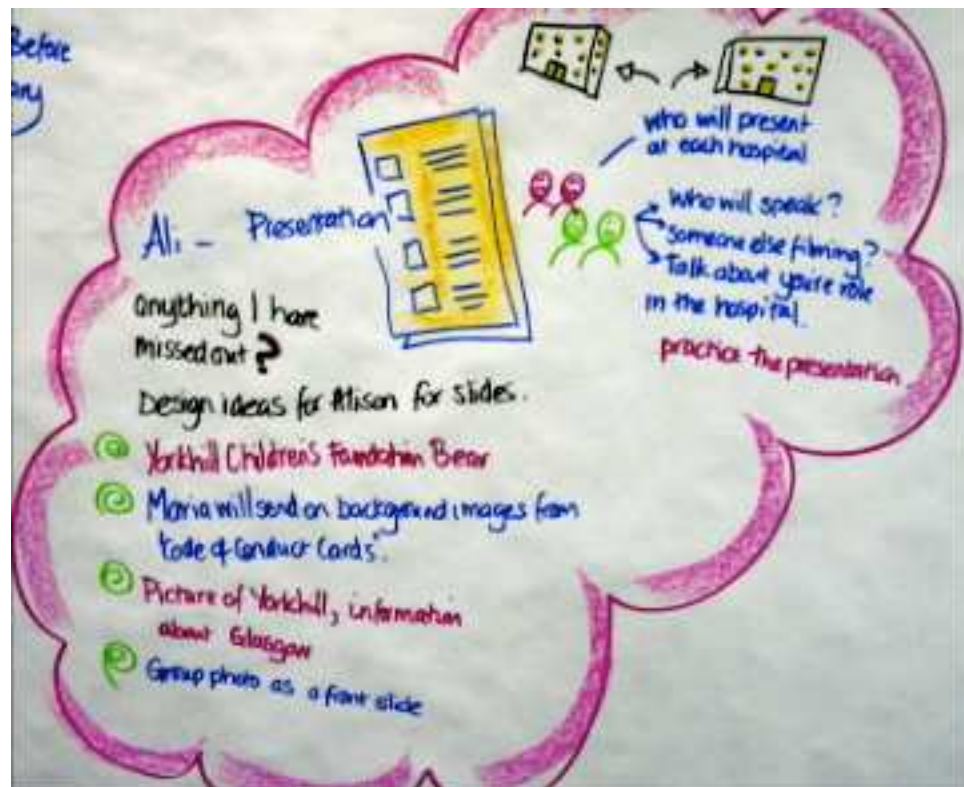 Before
who will present
at each hospital
Ali - Presentation
Who will speak?
Someone else filming?
Talk about you're role
in the hospital.
practice the presentation
anything I have
missed out?
Design ideas for Alison for slides.
Yorkhill Children's Foundation Bear
Maria will send on background images from
"Code of Conduct Cards".
Picture of Yorkhill, information
about Glasgow
Group photo as a front slide